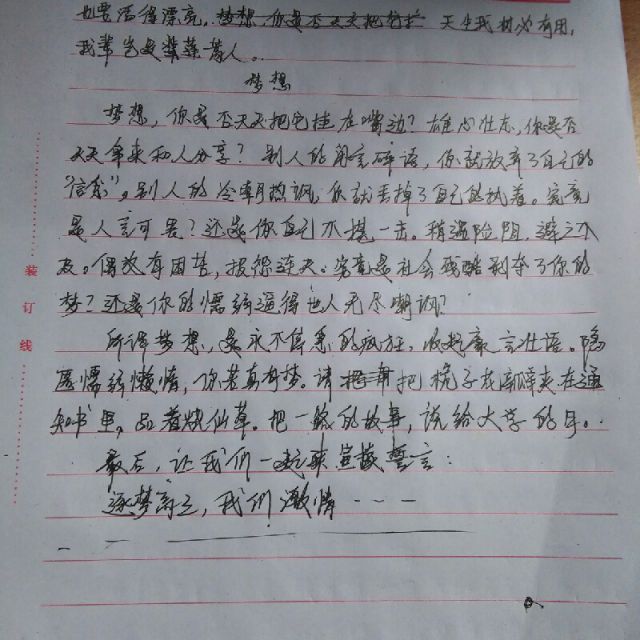 也要活得漂亮，梦想，你是否天天把它挂 天生我材必有用，
我辈岂是蓬蒿人。
梦想
梦想，你是否天天把它挂在嘴边？雄心壮志，你是否
天天拿来和人分享？别人的闲言碎语，你就放弃了自己的
"信念"，别人的冷嘲热讽，你就丢掉了自己的执着。究竟
是人言可畏？还是你自己不堪一击。稍遇险阻，避之不
及。偶放有困苦，报怨连天。究竟是社会残酷剥夺了你的
梦？还是你的懦弱逼得他人无尽嘲讽？
所谓梦想，是永不停息的疯狂，收起豪言壮语。隐
匿懦弱懒惰，你若真有梦。请把桃子夹在通
知书里，品着烧仙草。把一路的故事，说给大学的
最后，让我们一起来宣誓誓言：
逐梦高三，我们激情---
装
订
线